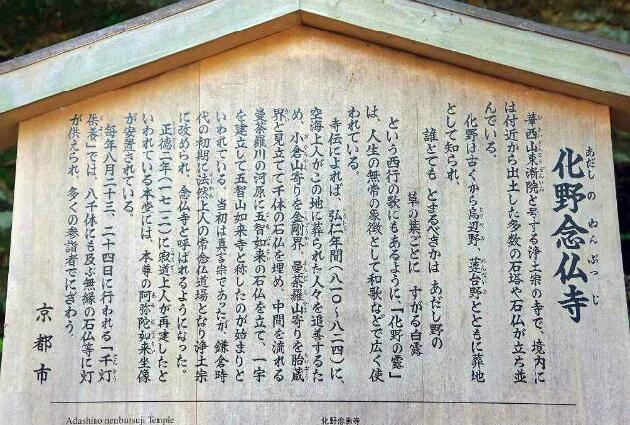 化野念仏寺
あだしのねんぶつじ
華西山東漸院と号する浄土宗の寺で、境内に
は付近から出土した多数の石塔や石仏が立ち並
んでいる。
化野は古くから鳥辺野、蓮台野とともに葬地
として知られ、
誰とても とまるべきかは あだし野の
草の葉ごとに すがる白露
という西行の歌にもあるように、「化野の露」
は、人生の無常の象徴として和歌などで広く使
われている。
寺伝によれば、弘仁年間(八一〇〜八二四)に、
空海上人がこの地に葬られた人々を追善するた
め、小倉山寄りを金剛界、曼荼羅山寄りを胎蔵
界と見立てて千体の石仏を埋め、中間を流れる
曼荼羅川の河原に五智如来の石仏を立て、一宇
を建立して五智山如来寺と称したのが始まりと
いわれている。当初は真言宗であったが、鎌倉時
代の初期に法然上人の常念仏道場となり浄土宗
に改められ、念仏寺と呼ばれるようになった。
正徳二年(一七一二)に寂道上人が再建したと
いわれている本堂には、本尊の阿弥陀如来坐像
が安置されている。
毎年八月二十三、二十四日に行われる「千灯
供養」では、八千体にも及ぶ無縁の石仏等に灯
が供えられ、多くの参詣者でにぎわう。
京都市
Adashino nenbutsuji Temple
化野念恩寺